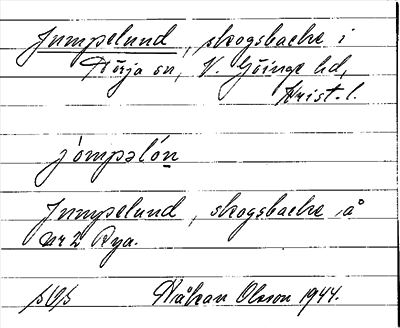 Jumpelund, skogsbacke i
Norja sn, V. Göinge hd,
Krist. l.
jómpəlón
Jumpelund, skogsbacke å
nr 2 Rya.
Håkan Olsson 1944.